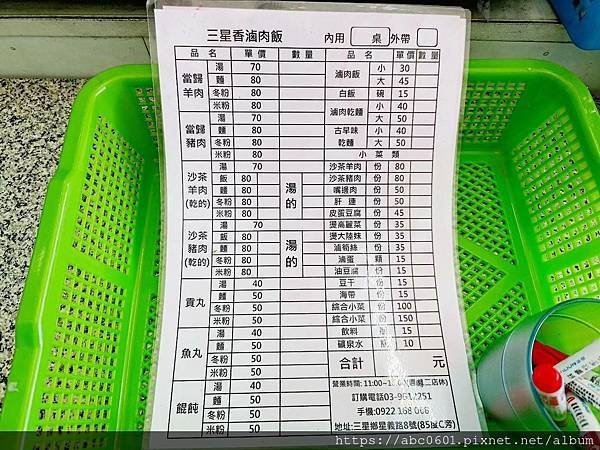 三星香滷肉飯 內用 桌 外帶
品名 單價 數量 品名 單價 數量
當歸羊肉
湯 70
麵 80
冬粉 80
米粉 80
當歸豬肉
湯 70
麵 80
冬粉 80
米粉 80
沙茶羊肉(乾的)
湯 70
飯 80
麵 80
冬粉 80
米粉 80
湯的
沙茶豬肉(乾的)
湯 70
飯 80
麵 80
冬粉 80
米粉 80
湯的
貢丸
湯 40
麵 50
冬粉 50
米粉 50
魚丸
湯 40
麵 50
冬粉 50
米粉 50
餛飩
湯 40
麵 50
冬粉 50
米粉 50
滷肉飯 小 30
大 45
白飯 碗 15
滷肉乾麵 小 40
大 50
古早味乾麵 小 40
大 50
小菜類
沙茶羊肉 份 80
沙茶豬肉 份 80
嘴邊肉 份 50
肝連 份 50
皮蛋豆腐 份 45
燙高麗菜 份 35
燙大陸妹 份 35
滷筍絲 份 35
滷蛋 顆 15
油豆腐 份 15
豆干 份 15
海帶 份 15
綜合小菜 份 100
綜合小菜 份 150
飲料 15
礦泉水 瓶 10
合計 元
營業時間: 11:00~
二店休)
訂購電話03-9
251
手機:0922
地址:三星鄉星義路8號(85度C旁)
https://abc0601.pixnet.net/album